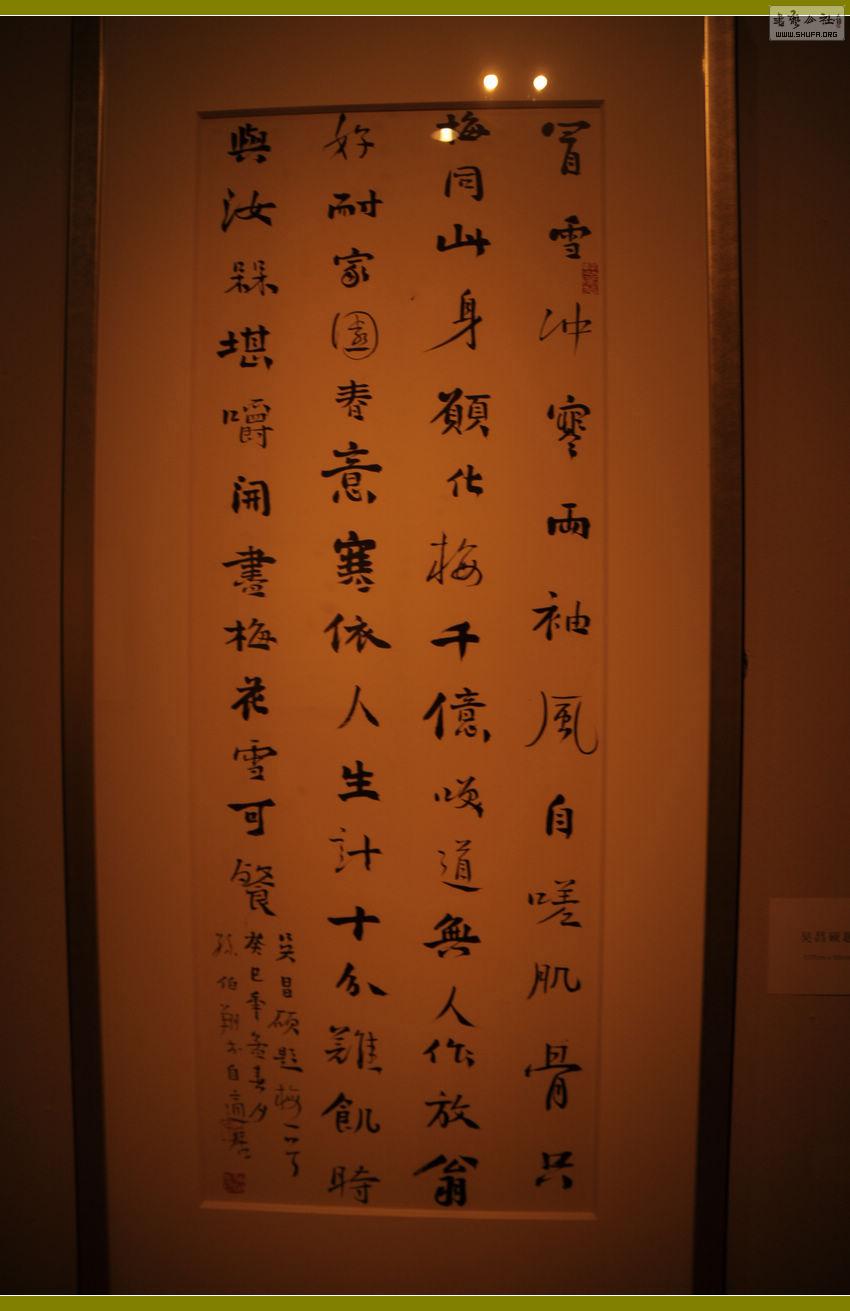 冒雪冲寒兩袖風自嗟肌骨只
梅同此身願化梅千億嘆道無人作放翁
好耐家園春意寒依人生計十分難飢時
與汝槑堪嚼開畫梅花雪可餐
吳昌碩題梅
癸巳年春夕
孫伯翔於自適居
吴昌碩題
書藝公社
WWW.SHUFA.ORG